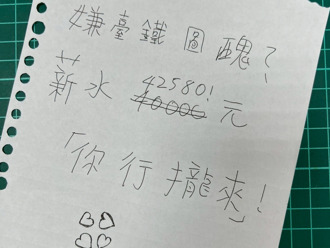 嫌臺鐵圖醜?
薪水 42580! 40006 元
「你行攏來!